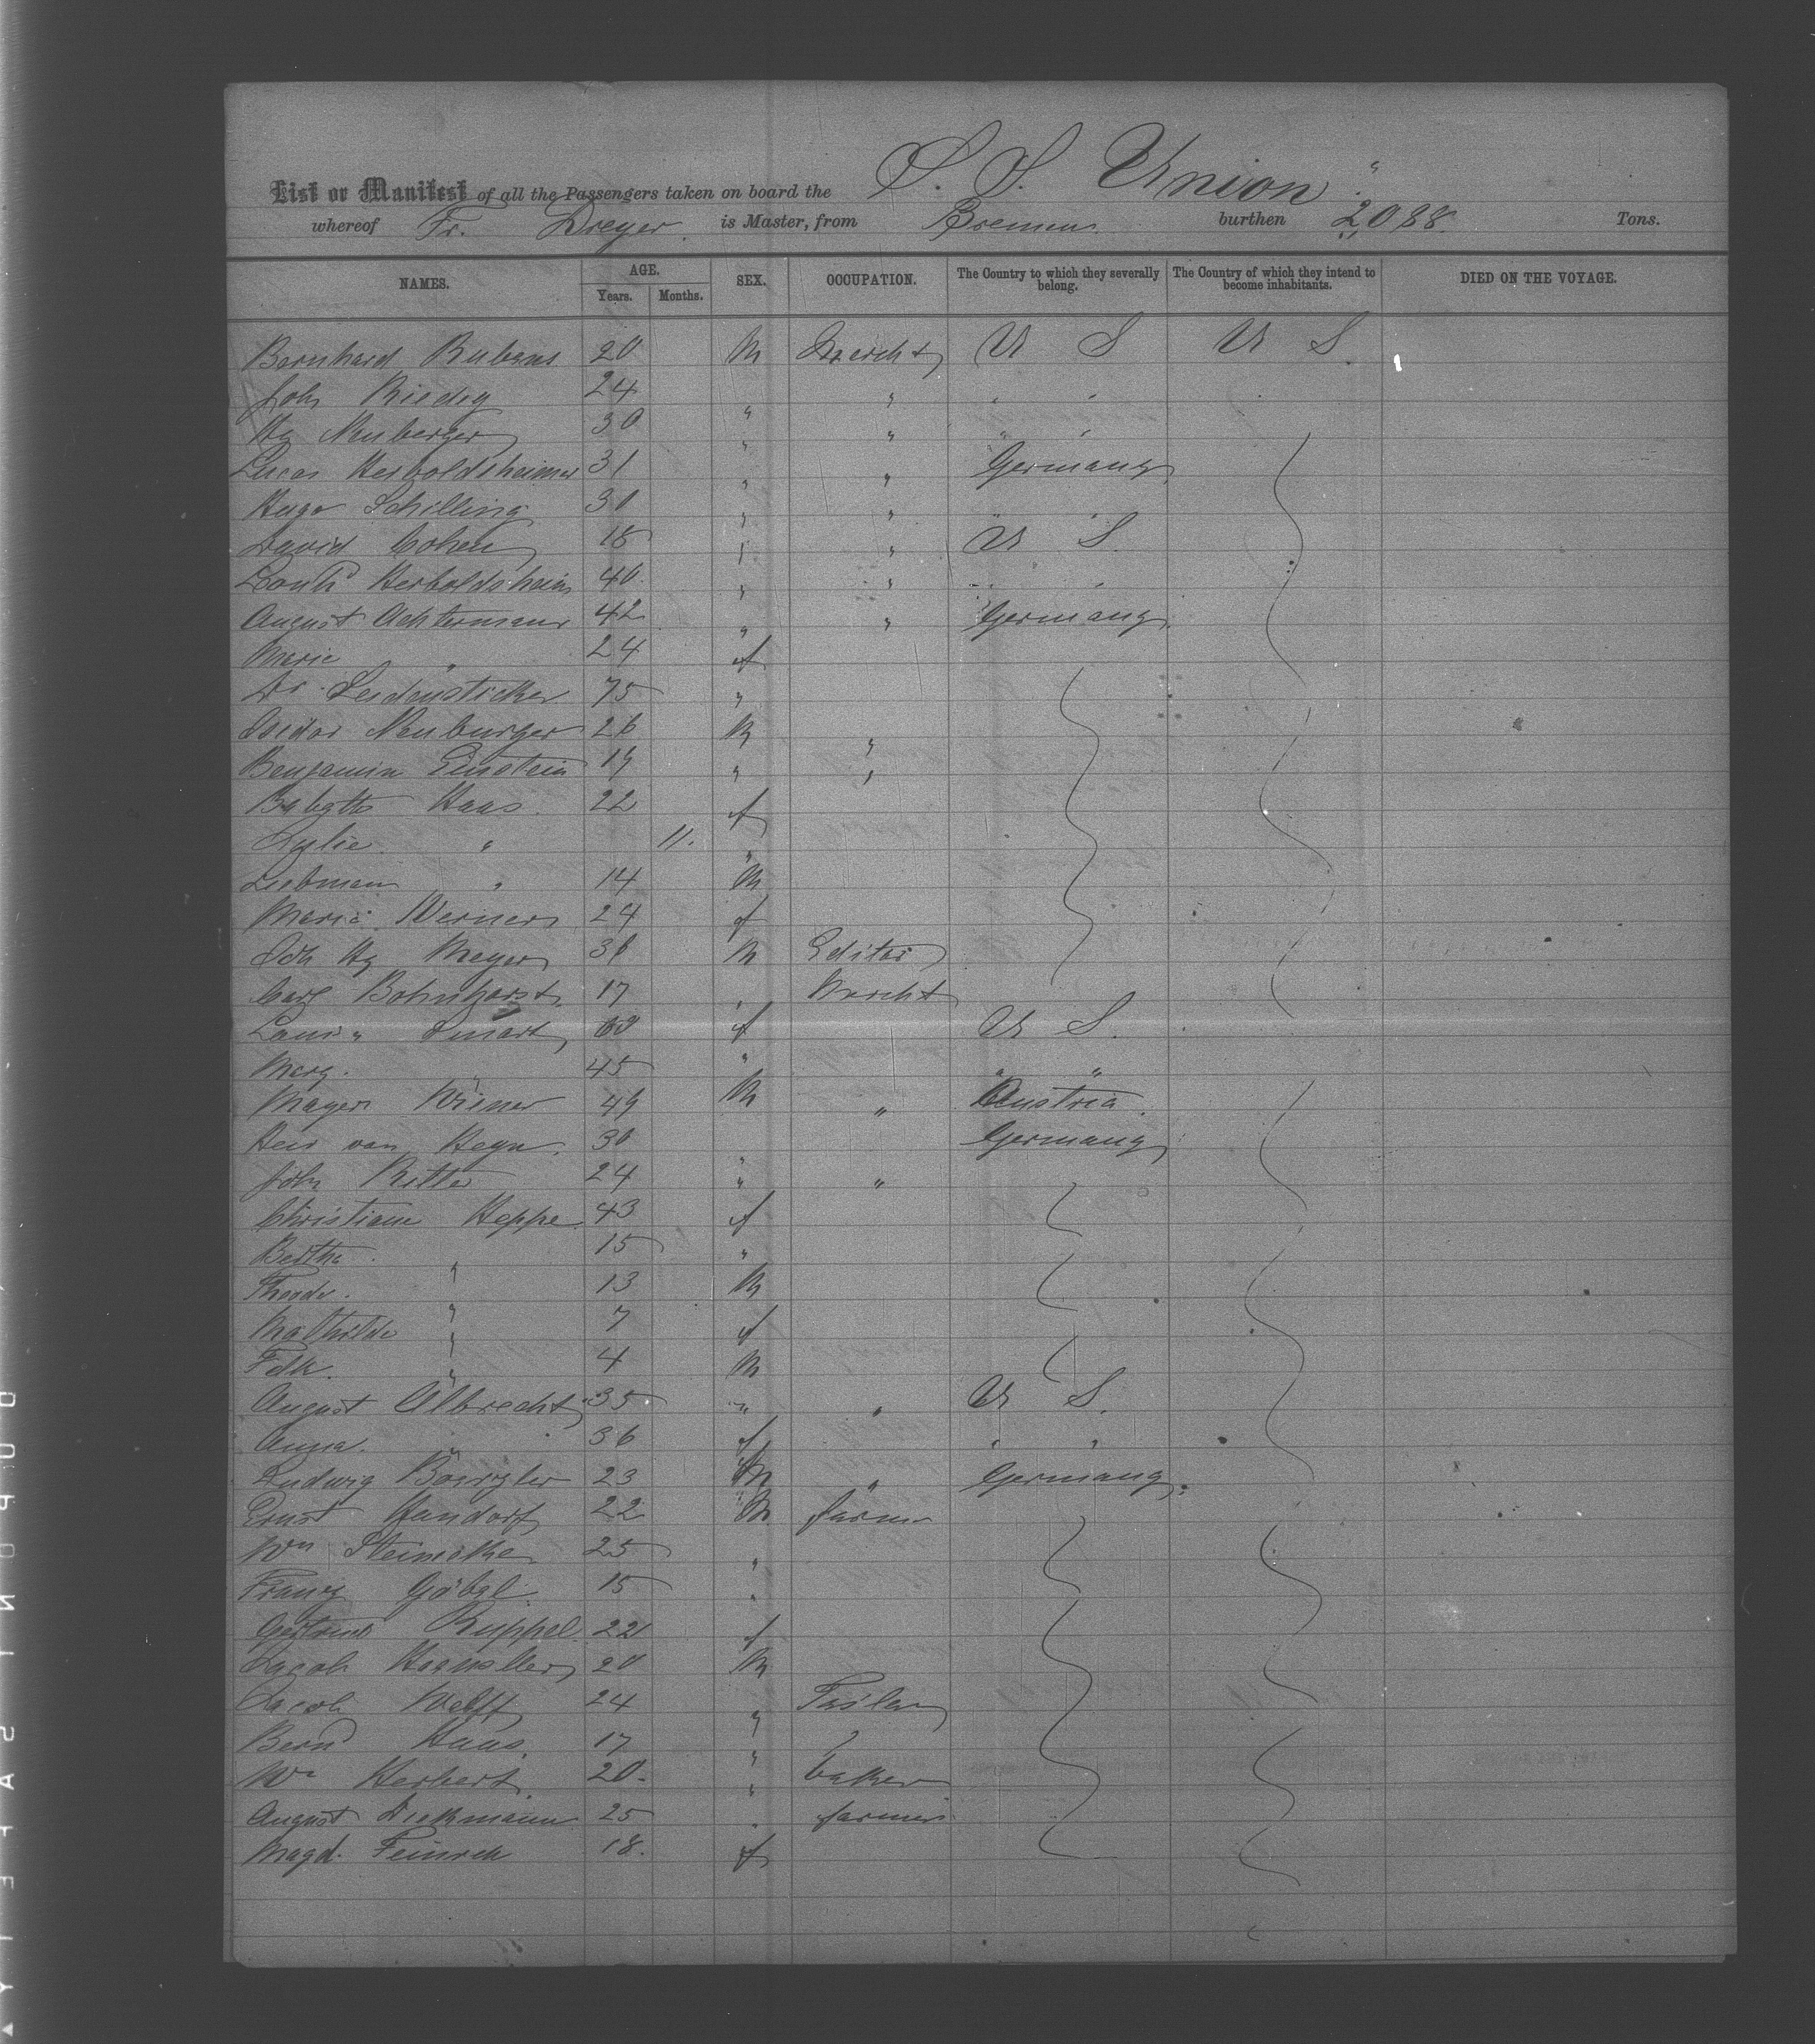 List or Manifest of all the Passengers taken on board the S. S. Union
whereof Fr. Dreyer is Master, from Bremen burthen 2088 Tons.
NAMES. AGE. Years. Months. SEX. OCCUPATION. The Country to which they severally belong. The Country of which they intend to become inhabitants. DIED ON THE VOYAGE.
Bernhard 20 M Mercht U S U S.
John 24 " " " "
Hy Neuberger 30 " " " "
Lucas Herboldsheimer 31 " " Germany
Hugo Schilling 30 " " " "
David Cohen 18 " " U S.
Herboldsheim 40 " " " "
August Achtermann 42 " " Germany
Marie " 24 f
Dr. Seidensticker 75 "
Isidor Neuburger 26 M "
Benjamin Einstein 19 " "
Babette Haas. 22 f
" 11. "
Liebman " 14 M
Marie Werner 24 f
Joh Hy Meyer 36 M Editor
Carl Bohnhorst 17 " Mercht
Smart f U S.
Mary. " 45 " " "
Mayer Wiener 49 M " Austria.
van Heyn. 30 Germany
John Ritter 24 " "
Christiane Heppe. 43 f
Bertha. " 15 "
Theodr. " 13 M
Mathilde " 7 f
Fdk. " 4 M
August Albrecht 35 " " U S.
Anna. " 36 f " "
Ludwig 23 M " Germany.
Ernst Handorf 22 M farmer
Wm Steinecke 25 "
Franz Göbel. 15 "
Gertrud Ruppel. 22 f
Jacob 20 M
Jacob Wolff 24 " Tailor
Bernd Haas. 17 " "
Wm Herbert 20. " baker
August Diekmann 25 " farmer
Magd. 18. f